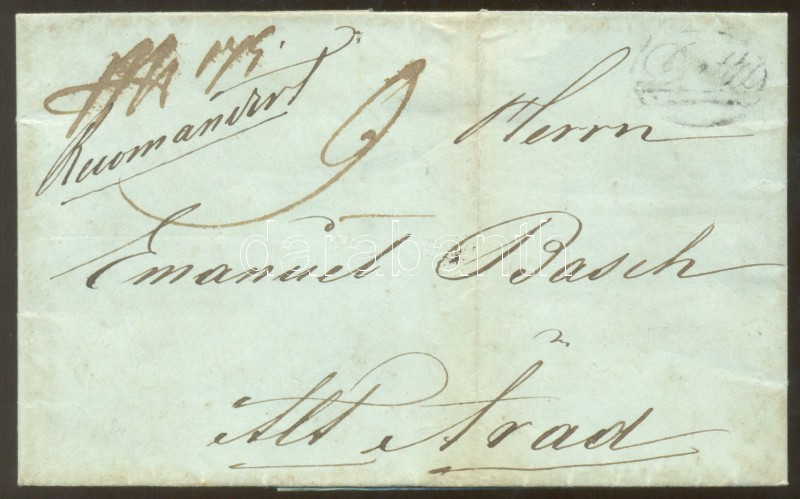 Recomandirt
9
Herrn
Emanuel Basch
Alt Arad
darabanth